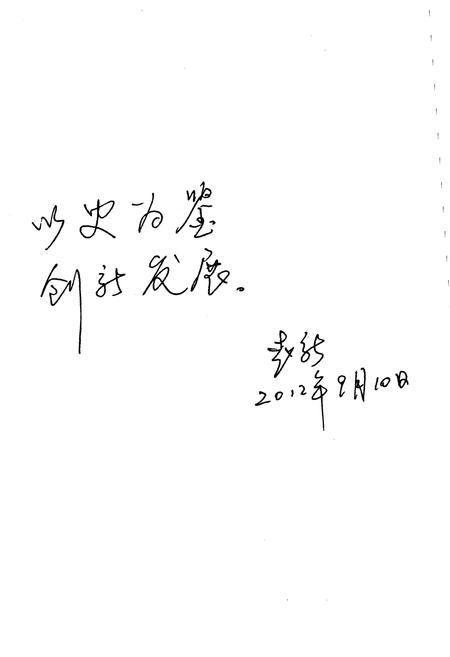 以史为鉴
创新发展。
新
2012年9月10日